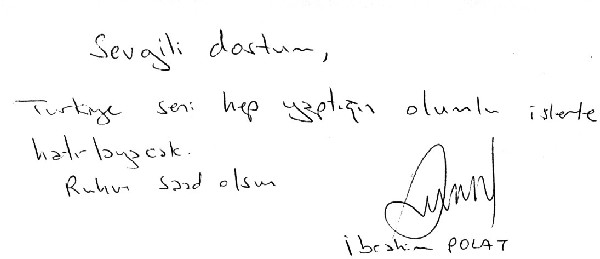 Sevgili dostum,
Türkiye seni hep yaptığın olumlu işlerle
hatırlayacak.
Ruhun şad olsun
İbrahim POLAT